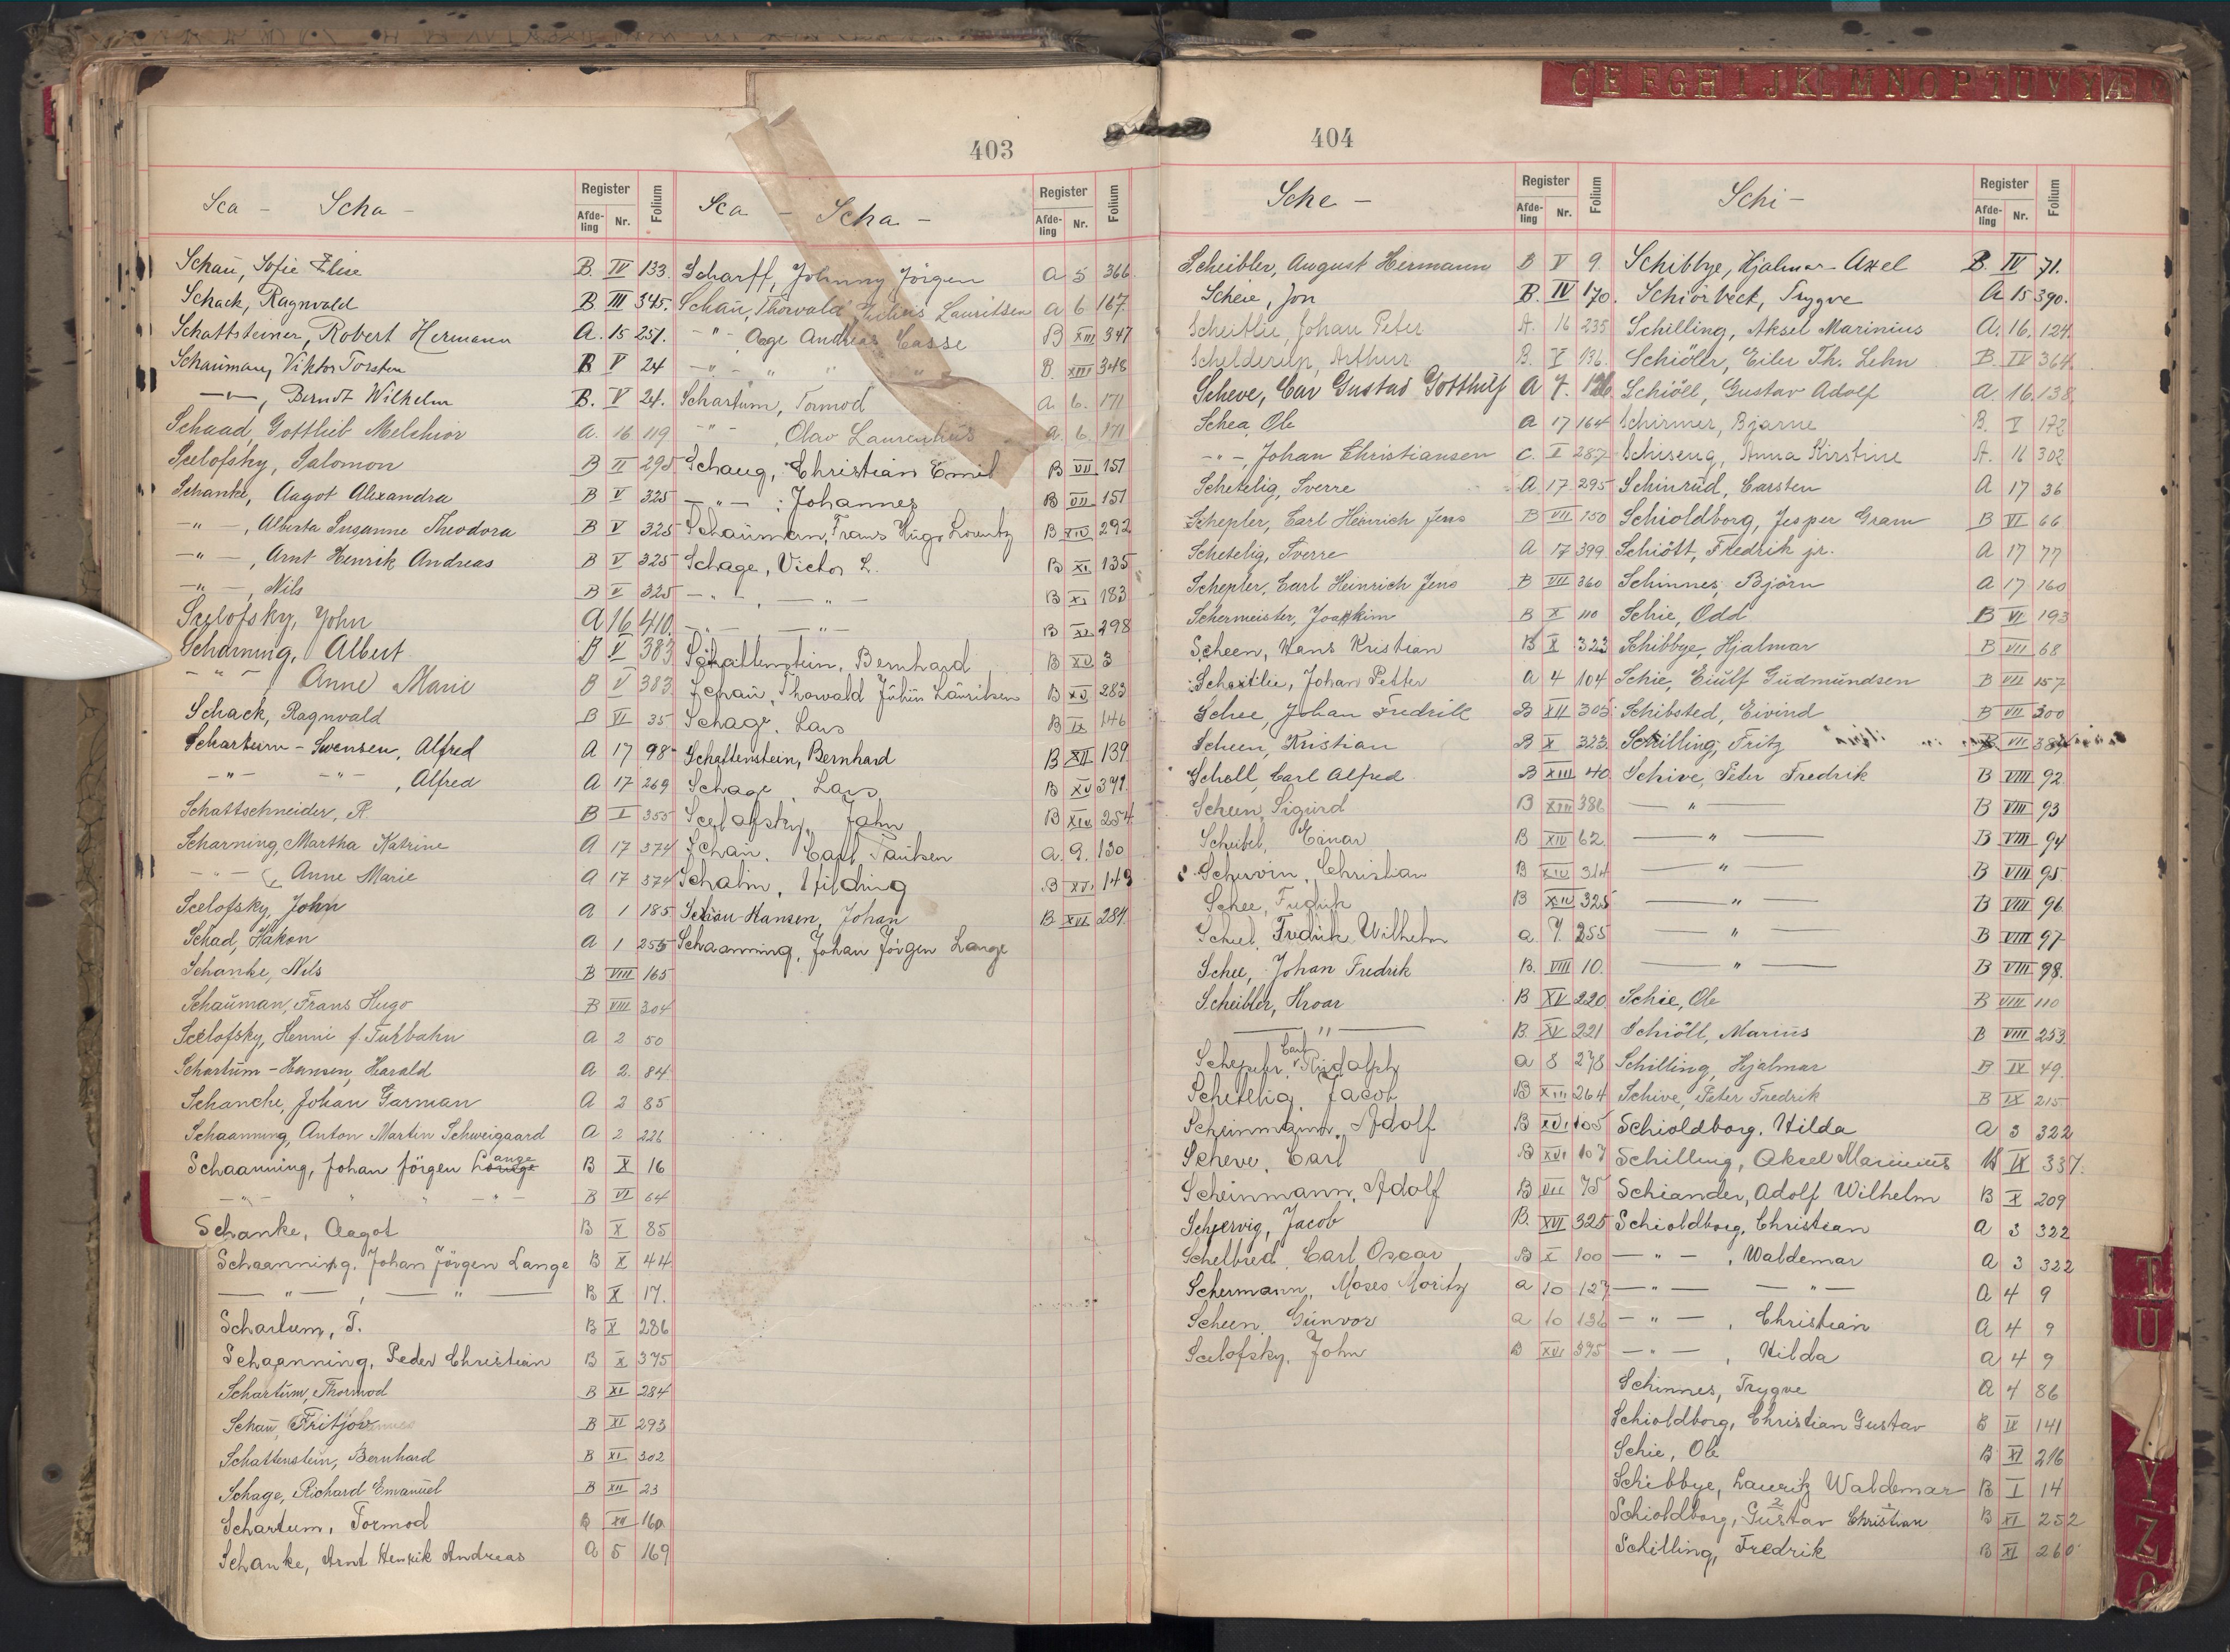 C E F G H I J K L M N O P T U V Y Æ
403
Sca - Scha -
Register
Afde-ling Nr. Folium
Schau, Sofie Elise B. IV 133.
Schack, Ragnvald B. III 345.
Schattsteiner, Robert Hermann A. 15 251.
Schauman, Viktor Torsten B V 24
-"-, Berndt Wilhelm B. V 24.
Schaad, Gottlieb Melchior A. 16 119
Scelofsky, Salomon B II 295
Schanke, Aagot Alexandra B V 325
-"-, Alberta Susanne Theodora B V 325
-"-, Arnt Henrik Andreas B V 325
-"-, Nils B V 325
Scelofsky, John A 16 410.
Scharning, Albert B V 383
-"- Anne Marie B V 383
Schack, Ragnvald B VI 35
Schartum-Swensen, Alfred A 17 98
-"- -"-, Alfred A 17 269
Schattschneider, R. B I 355
Scharning, Martha Katrine A 17 374
-"- Anne Marie A 17 374
Scelofsky, John A 1 185
Schad, Håkon A 1 255
Schanke, Nils B VIII 165
Schauman, Frans Hugo B VIII 304
Scelofsky, Henni f. Turbahn A 2 50
Schartum-Hansen, Harald A 2. 84
Schanche, Johan Garman A 2 85
Schaanning, Anton Martin Schweigaard A 2 226
Schaanning, Johan Jörgen Lange B X 16
-"- " " -"- B VI 64
Schanke, Aagot B X 85
Schaanning, Johan Jörgen Lange B X 44
-"-, -"- B X 17.
Schartum, T. B X 286
Schaanning, Peder Christian B X 375
Schartum, Thormod B XI 284
Schau, Fritjov B XI 293
Schattenstein, Bernhard B XI 302
Schage, Richard Emanuel B XII 23
Schartum, Tormod B XII 160
Schanke, Arnt Henrik Andreas A 5 169
Sca - Scha -
Register
Afde-ling Nr. Folium
Scharff, Johnny Jörgen A 5 366.
Schau, Thorvald Julius Lauritsen A 6 167.
-"- Aage Andreas Casse B XIII 347
-"- " " " B. XIII 348
Schartum, Tormod A. 6. 171
-"-, Olav Laurentius A 6. 171
Schaug, Christian Emil B VII 151
-"- : Johannes B VII 151
Schauman, Frans Hugo Lorentz B XIV 292
Schage, Victor L. B XI 135
-"-, -"- B XI 183
-"- -"- B XI 298
Schattenstein, Bernhard B XV 3
Schau, Thorvald Julius Lauritsen B XV 283
Schage, Lars B IX 146
Schattenstein, Bernhard B XII 139
Schage, Lars B XV 391.
Scelofsky, John B XIV 254
Schau, Carl Paulsen A. 9. 130
Schalin, Hilding B XVI 143
Schau-Hansen, Johan B XVI 284.
Schaanning, Johan Jörgen Lange
404
Sche -
Register
Afde-ling Nr. Folium
Scheibler, August Hermann B V 9.
Scheie, Jon B. IV 170.
Scheitlie, Johan Peter A. 16 235
Schelderup, Arthur B. V 136.
Scheve, Carl Gustav Gotthilf A 7. 126
Schea, Ole A 17 164
-"-, Johan Christiansen C. I 287
Schetelig, Sverre A 17 295
Schepler, Carl Heinrich Jens B VII 150
Schetelig, Sverre A 17 399
Schepler, Carl Heinrich Jens B VII 360
Schermeister, Joackim B X 110
Scheen, Hans Kristian B X 323
Scheitlie, Johan Petter A 4 104
Schee, Johan Fredrik B XII 305
Scheen, Kristian B X 323.
Scholl, Carl Alfred B XIII 40.
Scheen, Sigurd B XIII 386
Scheibel, Einar B XIV 62.
Schervin, Christian B XIV 314
Schee, Fredrik B XIV 325
Scheel, Fredrik Wilhelm A 7 255
Schee, Johan Fredrik B. VIII 10.
Scheibler, Hroar B XV 220
-"- B. XV 221
Schepeler, Carl Rudolph A 8 278
Schetelig, Jacob B XIII 264
Scheinmann, Adolf B XVI 105
Scheve, Carl B XVI 107
Scheinmann, Adolf B VIII 75
Schjervig, Jacob B. XVI 325
Schelbred, Carl Oscar B X 100
Schermann, Moses Moritz A 10 127
Scheen, Gunvor A 10 136
Scelofsky, John B XVI 395
Schi -
Register
Afde-ling Nr. Folium
Schibbye, Hjalmar Axel B. IV 71.
Schiörbeck, Trygve A 15 390.
Schilling, Aksel Marinius A. 16. 124.
Schiöll, Eiler Th. Lehn B. IV 364.
Schiöll, Gustav Adolf A. 16. 138.
Schirmer, Bjarne B. V 172
Schiseng, Anna Kirstine A. 16 302
Schinrud, Carsten A 17 36
Schioldborg, Jesper Gram B VI 66
Schiött, Fredrik jr. A 17 77
Schinnes, Björn A 17 160
Schie, Odd B VI 193
Schibbye, Hjalmar B VII 68
Schie, Eiulf Gudmundsen B VII 157
Schibsted, Eivind B VII 300
Schilling, Fritz B. VII 384
Schive, Peter Fredrik B VIII 92.
-"- B VIII 93
-"- B VIII 94
-"- B VIII 95.
-"- B VIII 96
-"- B VIII 97
-"- B VIII 98.
Schie, Ole B VIII 110
Schiöll, Marius B VIII 253
Schilling, Hjalmar B IX 49.
Schive, Peter Fredrik B IX 215
Schioldborg, Hilda A 3 322
Schilling, Aksel Marinius B IX 337.
Schiander, Adolf Wilhelm B X 209
Schioldborg, Christian A 3 322
-"-, Waldemar A 3 322
-"- -"- A 4 9
-"-, Christian A 4 9
-"-, Hilda A 4 9
Schinnes, Trygve A 4 86
Schioldborg, Christian Gustav B IX 141
Schie, Ole B XI 216
Schibbye, Lauritz Waldemar B I 14
Schioldborg, Gustav Christian B XI 252
Schilling, Fredrik B XI 260
T
U
Y
Z